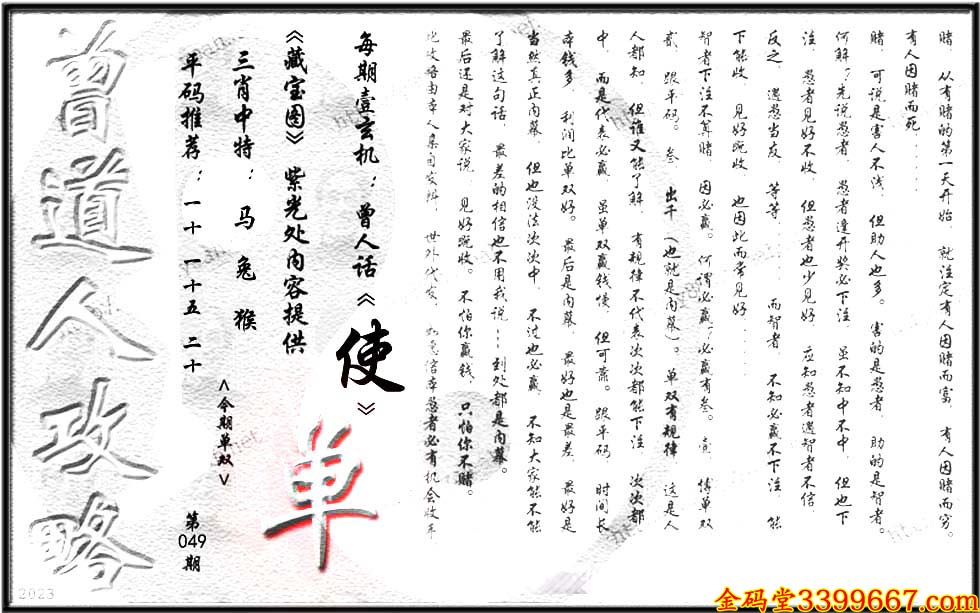 赌. 从有赌的第一天开始, 就注定有人因赌而富, 有人因赌而穷.
有人因赌而死......
赌. 可说是害人不浅, 但助人也多. 害的是愚者, 助的是智者.
何解? 先说愚者, 愚者逢开奖必下注, 虽不知中不中, 但也下
注. 愚者见好不收, 但愚者也少见好, 应知愚者遇智者不信.
反之, 遇愚当友, 等等...... 而智者, 不知必赢不下注, 能
下能收, 见好既收, 也因此而常见好......
智者下注不算赌, 因必赢. 何谓必赢? 必赢有叁. 壹, 博单双
贰, 跟平码. 叁, 出千(也就是内幕). 单双有规律, 这是人
人都知, 但谁又能了解, 有规律不代表次次都能下注, 次次都
中, 而是代表必赢, 虽单双赢钱慢, 但可靠. 跟平码, 时间长
本钱多, 利润比单双好. 最后是内幕, 最好也是最差, 最好是
当然真正内幕, 但也没法次次中, 不过也必赢, 不知大家能不能
了解这句话, 最差的相信也不用我说...到处都是内幕。
最后还是对大家说, 见好既收. 不怕你赢钱, 只怕你不赌。
此攻略由本人集自发辑, 世外代发,
每期壹玄机：曾人话《使》
《藏宝图》紫光处内容提供
三肖中特：马 兔 猴
单
<今期单双>
平码推荐：一十 一十五 二十
第049期
曾道人攻略
2023
金码堂3399667.com